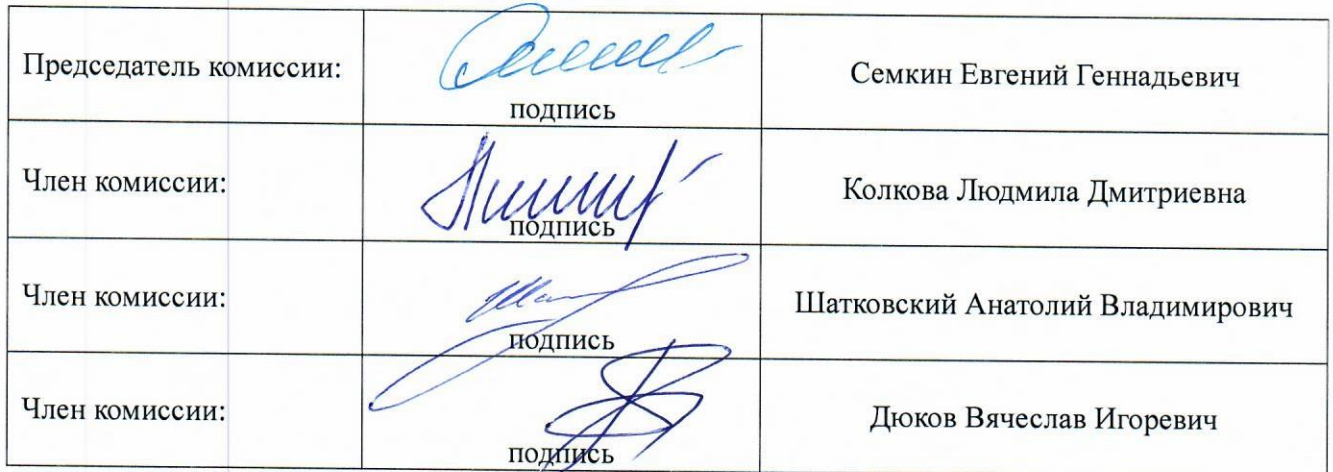 Председатель комиссии:
подпись
Семкин Евгений Геннадьевич
Член комиссии:
подпись
Колкова Людмила Дмитриевна
Член комиссии:
подпись
Шатковский Анатолий Владимирович
Член комиссии:
подпись
Дюков Вячеслав Игоревич